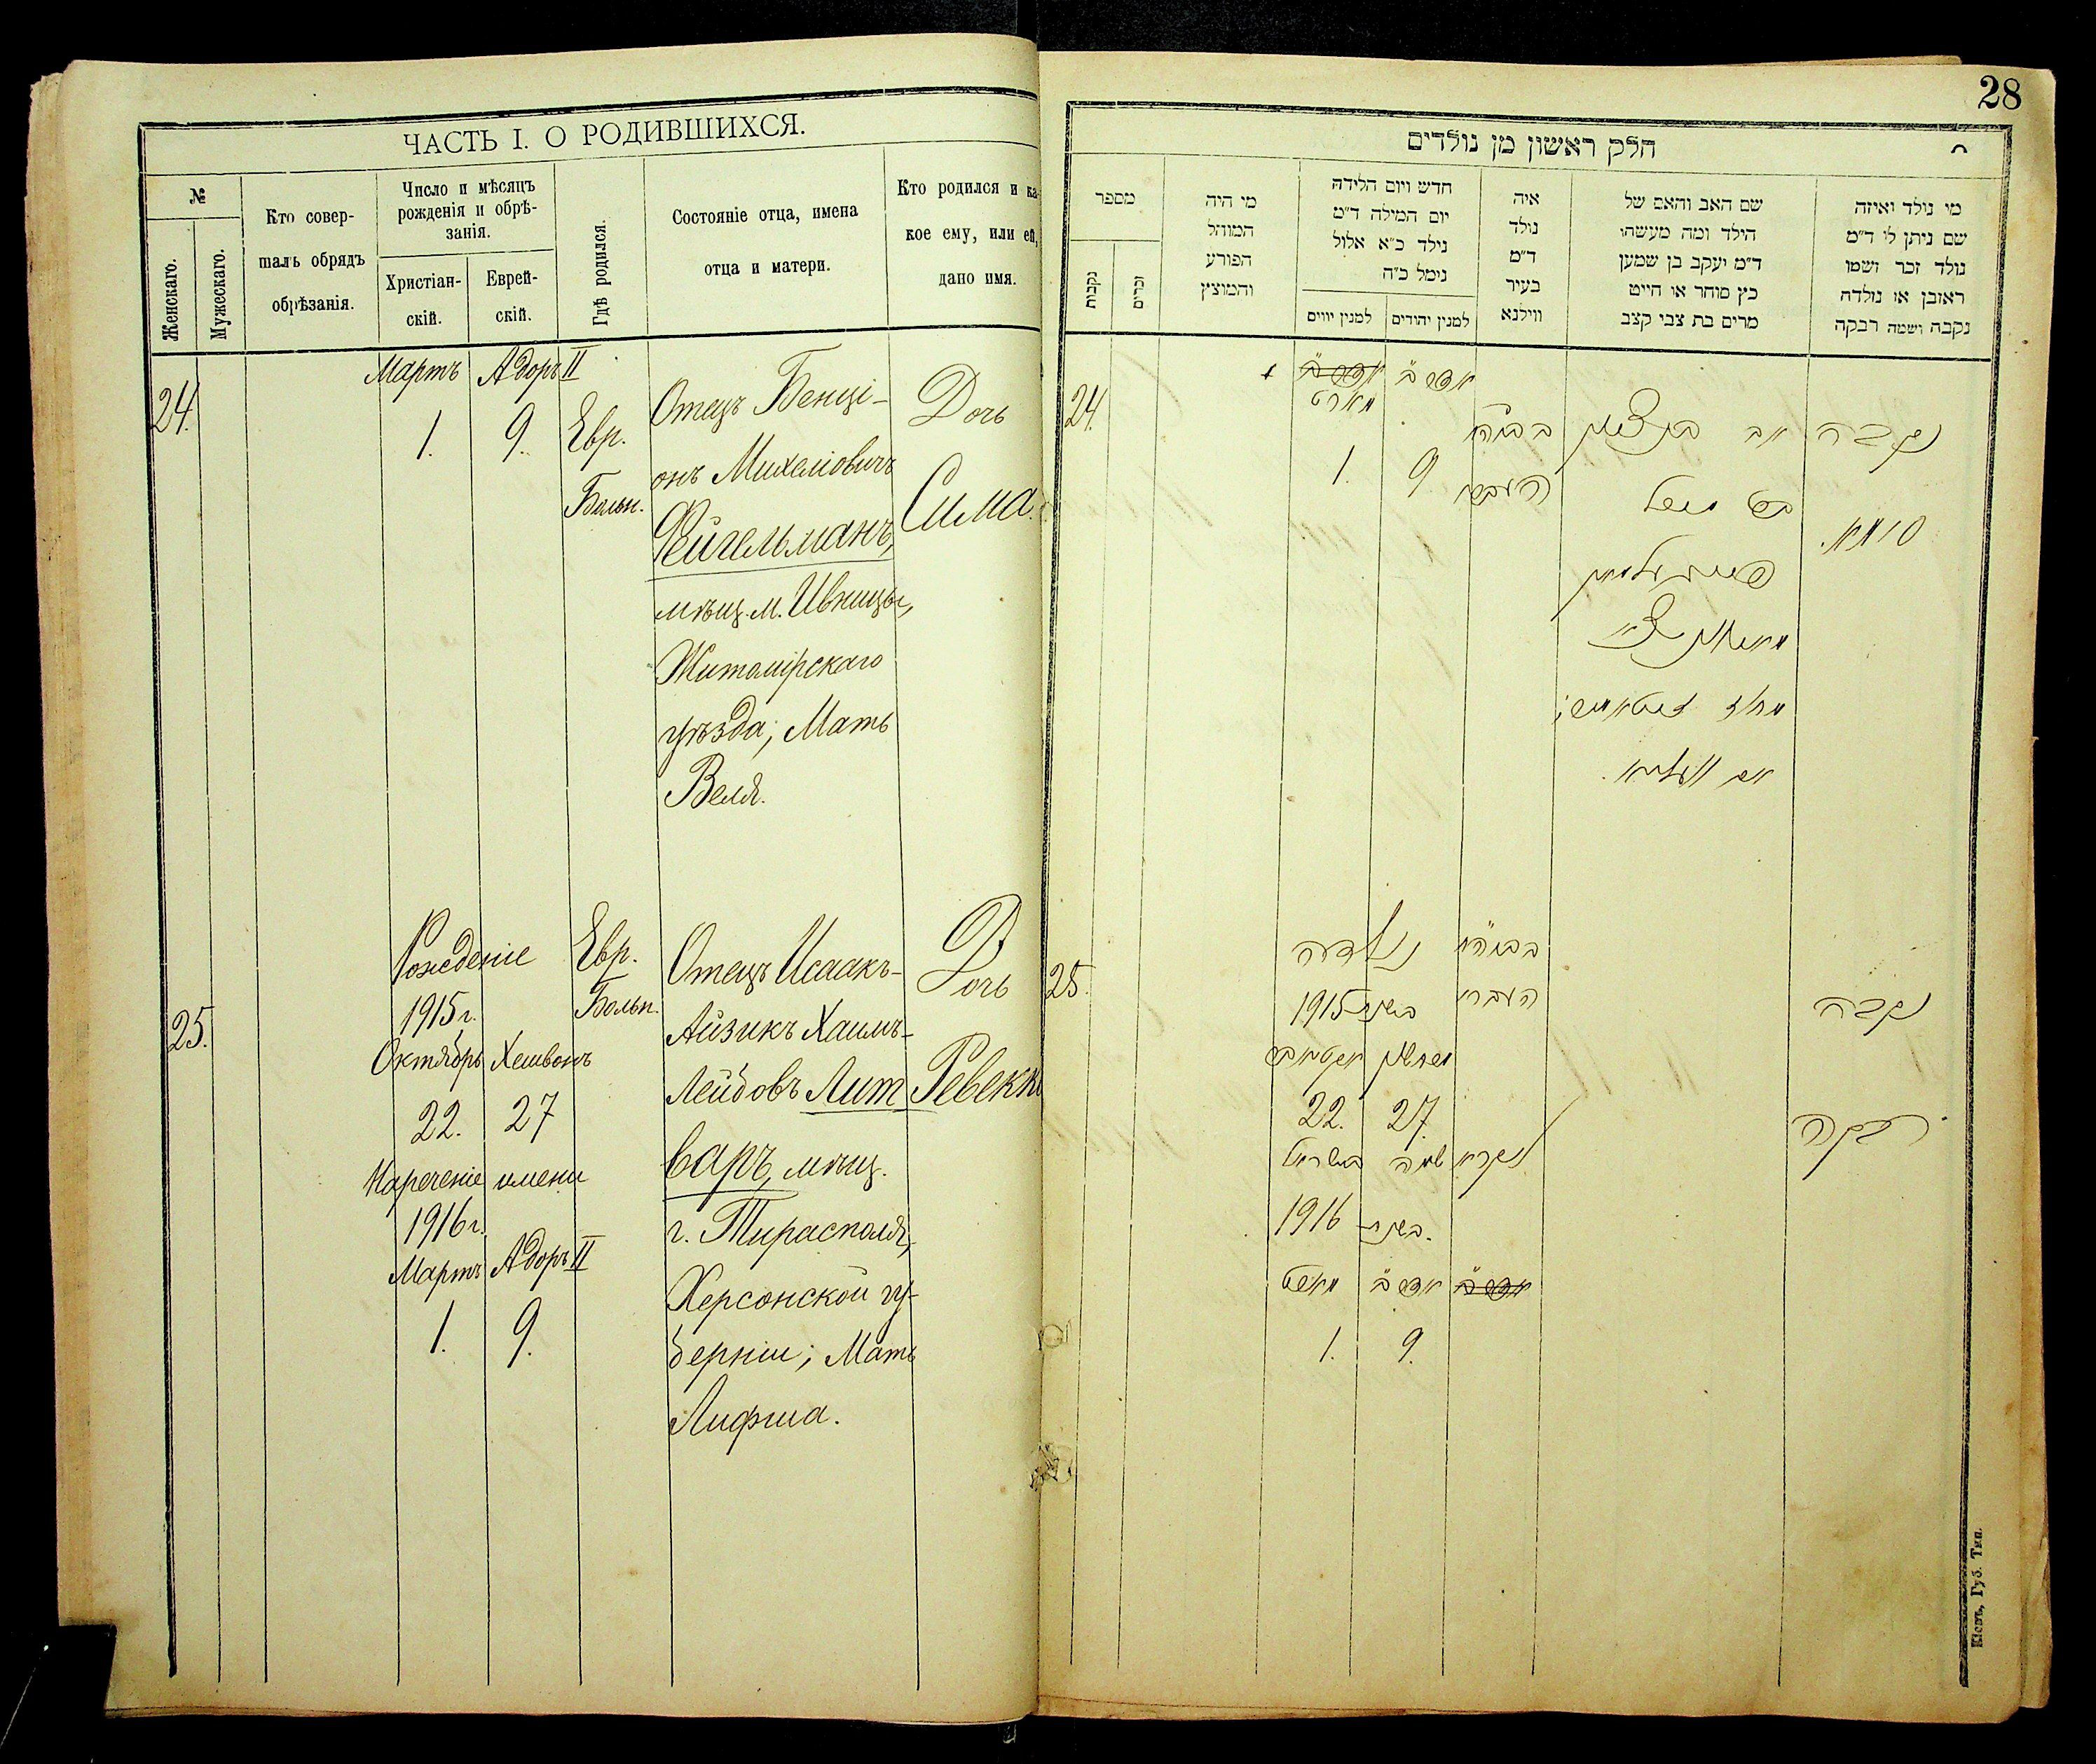 28
ЧАСТЬ I. О РОДИВШИХСЯ.
№
Женскаго.
Мужескаго.
Кто совер-
шалъ обрядъ
обрѣзанія.
Число и мѣсяцъ
рожденія и обрѣ-
занія.
Христіан-
скій.
Еврей-
скій.
Гдѣ родился.
Состояніе отца, имена
отца и матери.
Кто родился и ка-
кое ему, или ей,
дано имя.
24.
Мартъ Адоръ II
1. 9.
Евр.
Больн.
Отецъ Бенці-
онъ Михелiовичъ
Фейгельманъ,
мѣщ. м. Ивницы,
Житомірскаго
уѣзда; Мать
Веля.
Дочь
Сима.
25.
Рожденіе
1915 г.
Октябрь Хешвонъ
22. 27
Нареченіе имени
1916 г.
Мартъ Адоръ II
1. 9.
Евр.
Больн.
Отецъ Исаакъ-
Айзикъ Хаимъ-
Лейбовъ Лит
варъ, мѣщ.
г. Тирасполя,
Херсонской гу-
берніи; Мать
Лифша.
Дочь
Ревекк
חלק ראשון מן נולדים
מי נולד ואיזה
שם ניתן לו ד״מ
נולד זכר ושמו
ראובן או נולדה
נקבה ושמה רבקה
שם האב והאם של
הילד ומה מעשהו
ד״מ יעקב בן שמען
כץ סוחר או חייט
מרים בת צבי קצב
איה
נולד
ד״מ
בעיר
ווילנא
חדש ויום הלידה
יום המילה ד״מ
נילד כ״א אלול
נימל כ״ה
למנין יהודים
למנין יווים
מי היה
המוהל
הפורע
והמוצץ
מספר
זכרים
נקבות
24.
נקבה
סימא.
אב בן ציון
9
1.
25.
נקבה
רבקה
נולדה
בשנת 1915
27.
22.
בשנת 1916
9.
1.
Кіевъ, Губ. Тип.